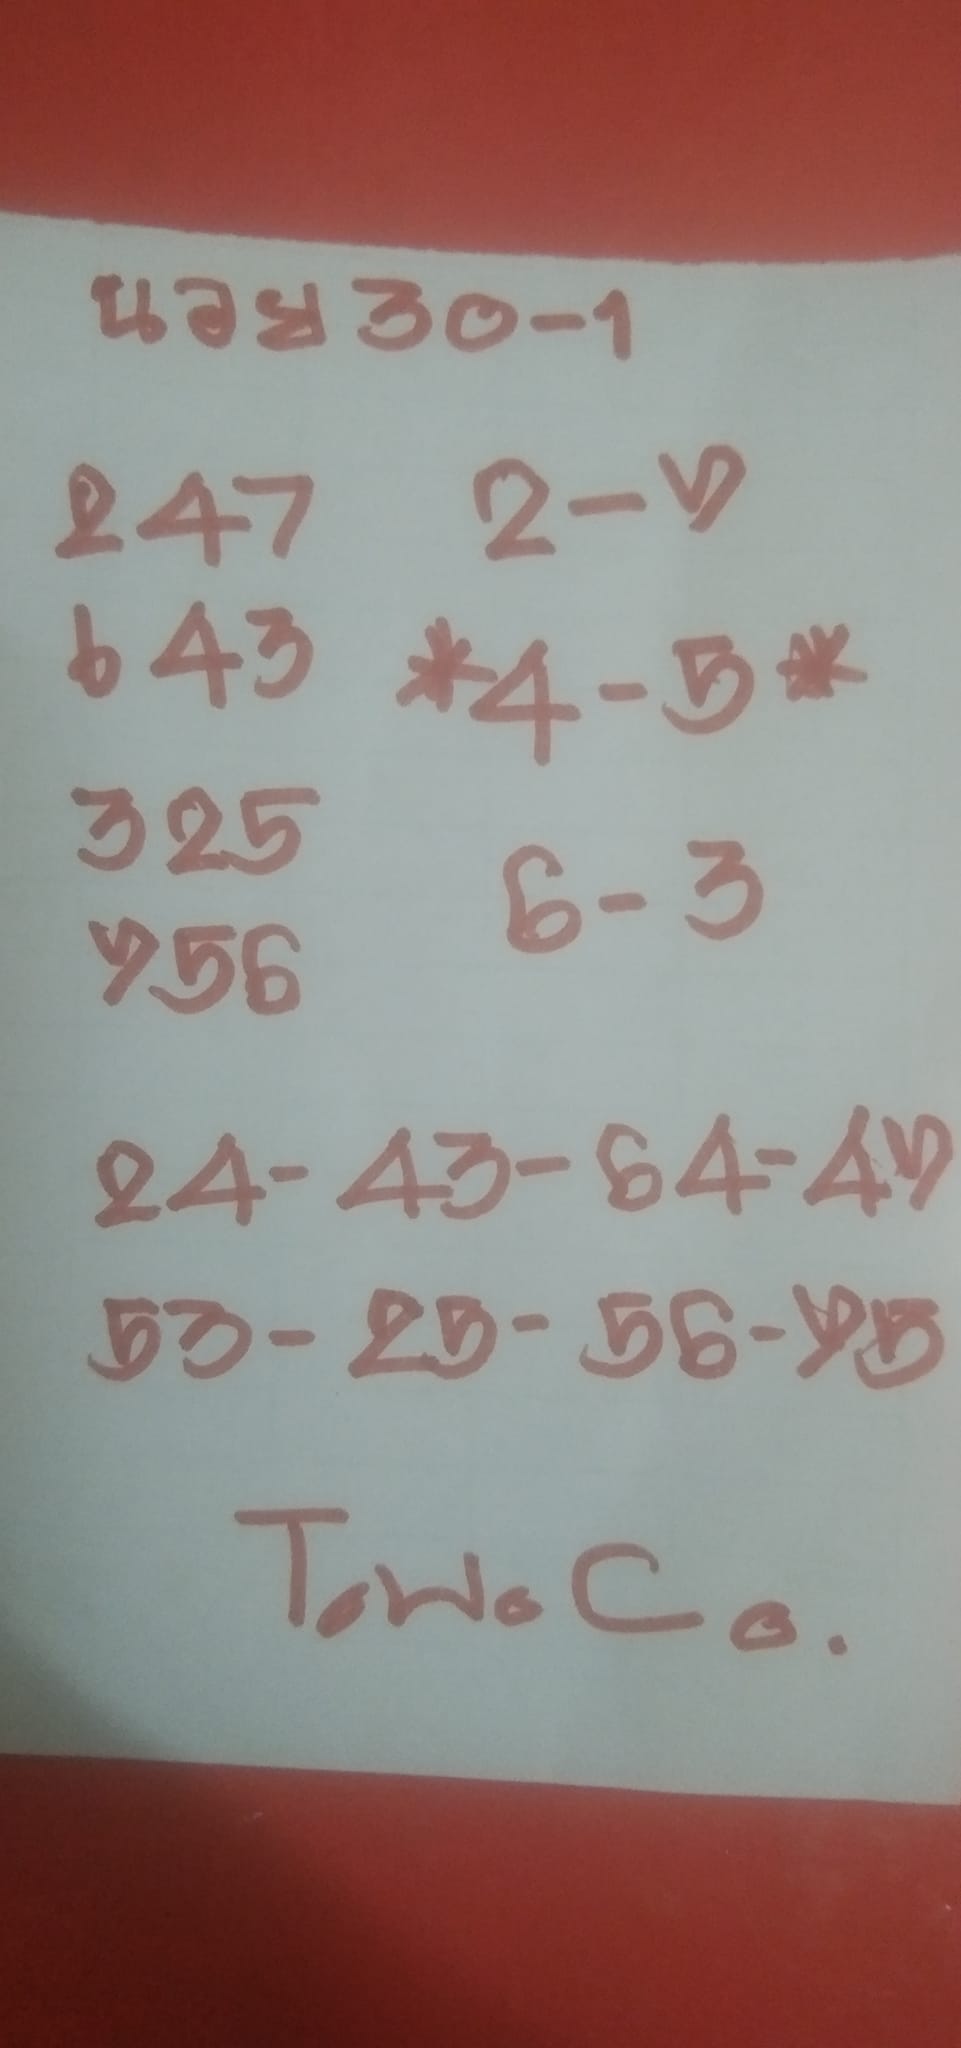 นอย 30-1
247 2-7
643 *4-5*
325
6-3
756
24-43-64-47
53-25-56-75